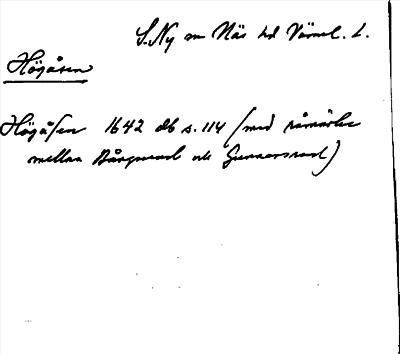 S. Ny sn Näs hd Värml. l.
Högåsen
Högåsen 1642 db s. 114 (med råmärke
mellan och Gunnarsrud)